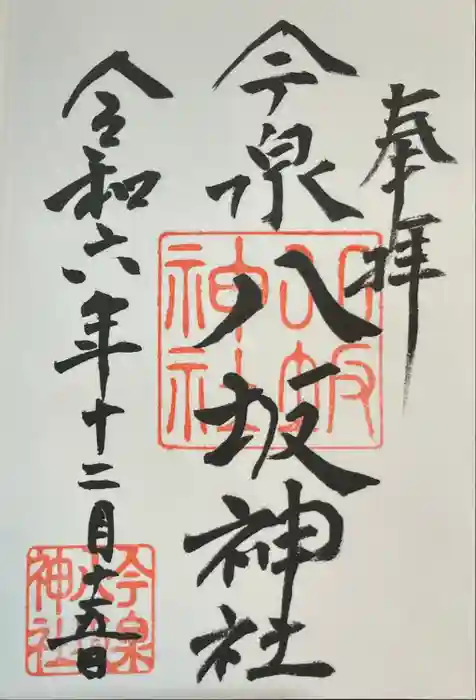 奉拝
今泉八坂神社
令和六年十二月十五日
八坂神社
今泉八坂神社